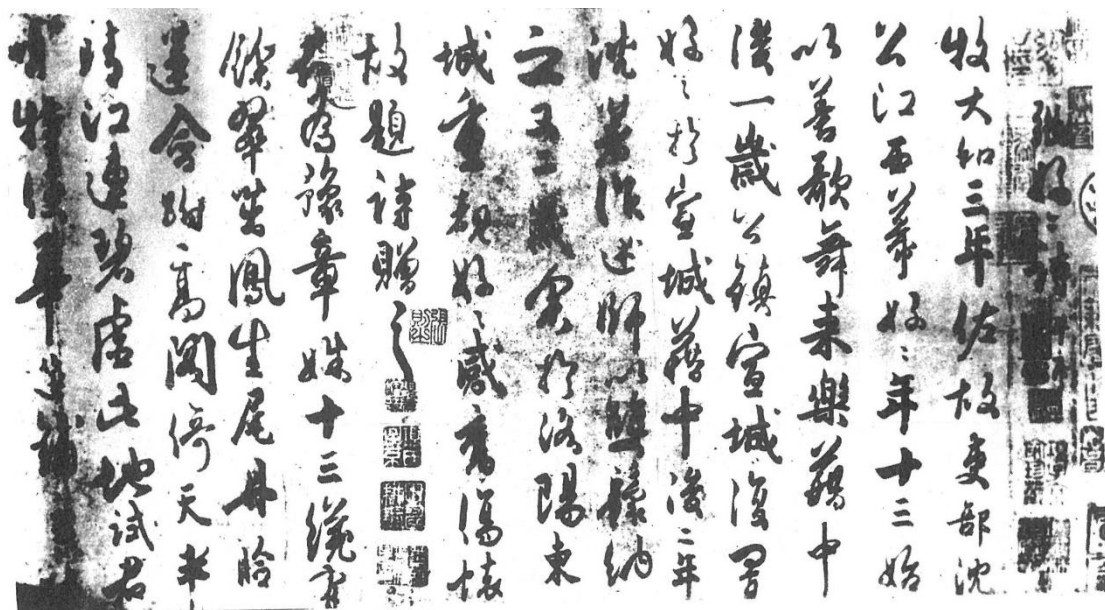 張好〻詩
牧大和三年佐故吏部沈
公江西幕好〻年十三始
以善歌舞来樂籍中
後一歲公鎮宣城復置
好〻於宣城籍中後二年
沈著作述師以雙鬟納
之又二歲余於洛陽東
城重覩好〻感舊傷懷
故題詩贈之
君為豫章姝十三纔有
餘翠茁鳳生尾丹臉
蓮含跗高閣倚天半
晴江連碧虛此地試君
唱特使華筵鋪